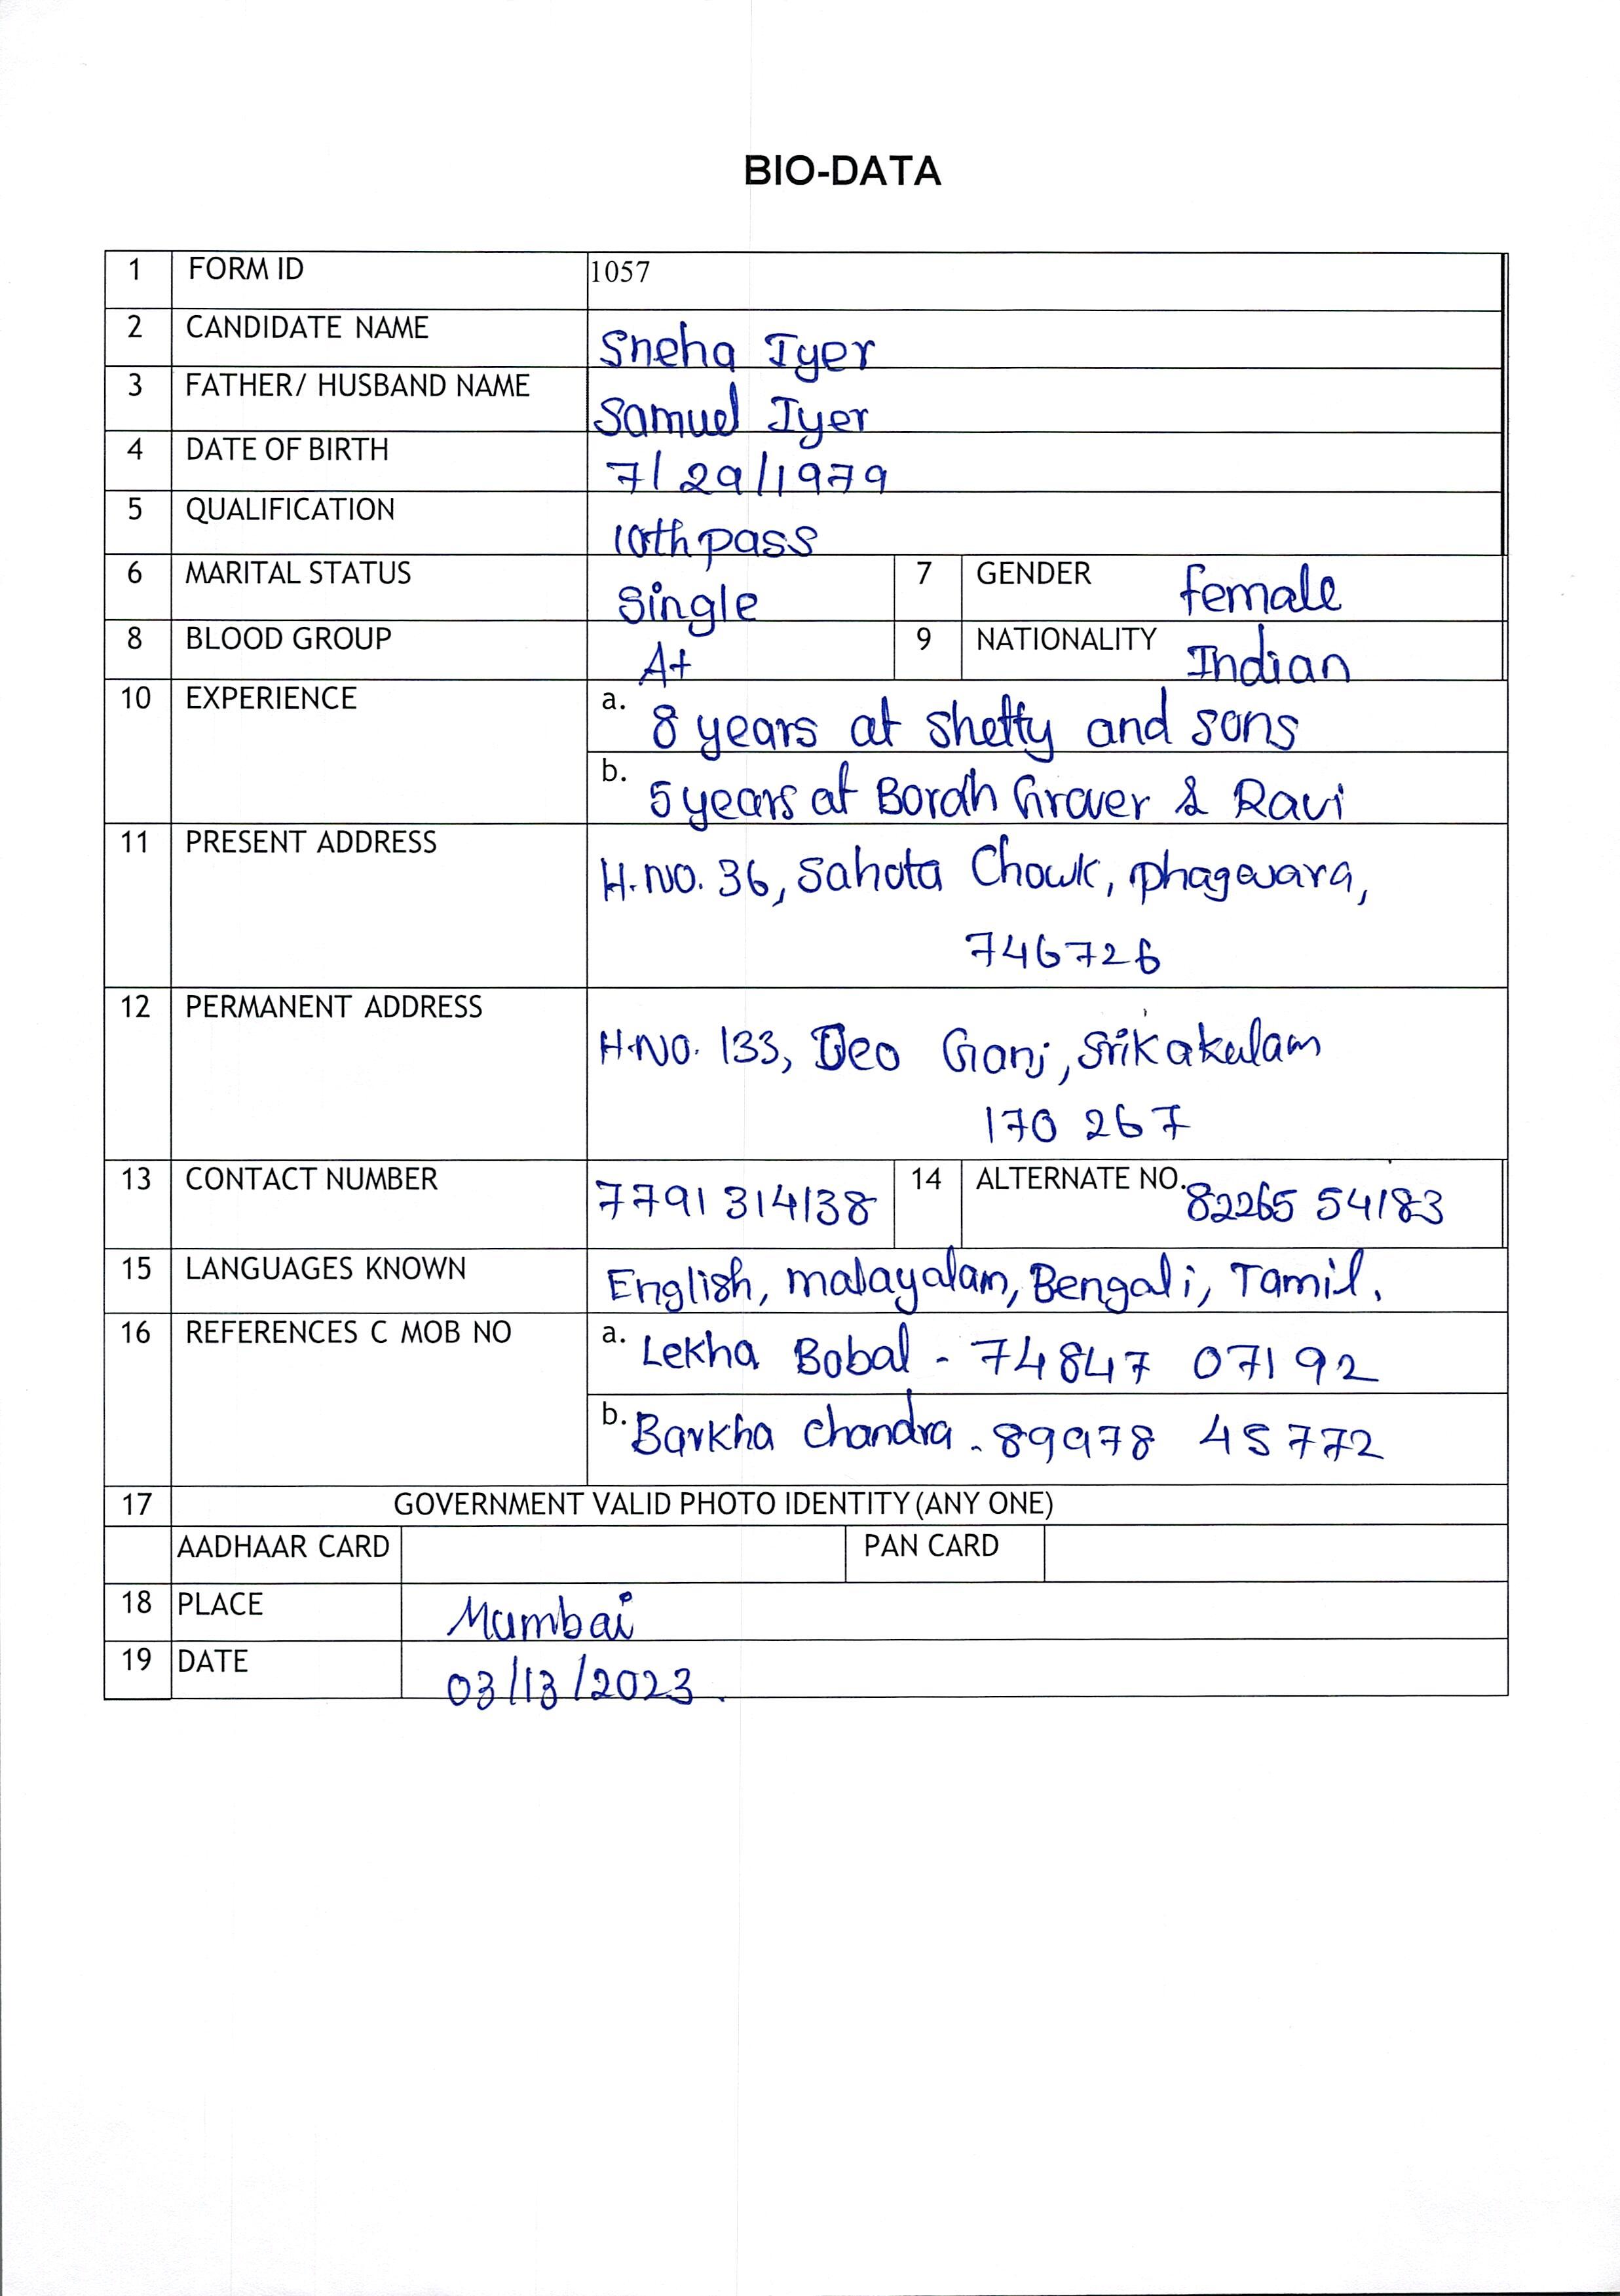 BIO-DATA
1 FORM ID 1057
2 CANDIDATE NAME Sneha Iyer
3 FATHER/ HUSBAND NAME Samuel Iyer
4 DATE OF BIRTH 7/29/1979
5 QUALIFICATION 10th pass
6 MARITAL STATUS Single 7 GENDER female
8 BLOOD GROUP A+ 9 NATIONALITY Indian
10 EXPERIENCE a. 8 years at shetty and sons
b. 5 years at Borah Grover & Ravi
11 PRESENT ADDRESS H.NO. 36, Sahota Chowk, phagwara,
746726
12 PERMANENT ADDRESS H.NO. 133, Deo Ganj, Srikakulam
170 267
13 CONTACT NUMBER 7791314138 14 ALTERNATE NO. 82265 54183
15 LANGUAGES KNOWN English, malayalam, Bengali, Tamil.
16 REFERENCES C MOB NO a. Lekha Bobal - 74847 07192
b. Barkha chandra - 89978 45772
17 GOVERNMENT VALID PHOTO IDENTITY (ANY ONE)
AADHAAR CARD PAN CARD
18 PLACE Mumbai
19 DATE 03/13/2023.